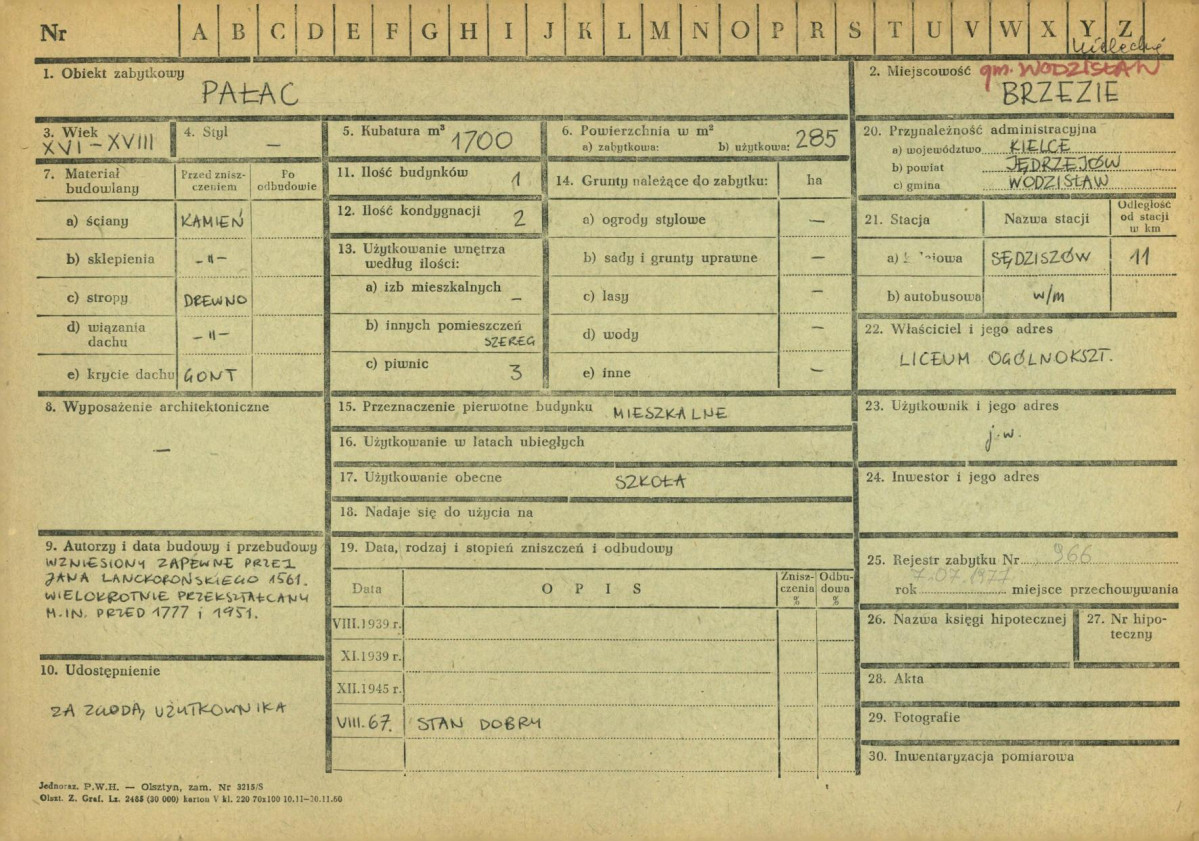 Nr A B C D E F G H I J K L M N O P R S T U V W X Y Z
kieleckie
1. Obiekt zabytkowy
PAŁAC
2. Miejscowość gm. WODZISŁAW
BRZEZIE
3. Wiek
XVI – XVIII
4. Styl
—
5. Kubatura m³ 1700
6. Powierzchnia w m²
a) zabytkowa: b) użytkowa: 285
7. Materiał budowlany
Przed zniszczeniem
Po odbudowie
a) ściany KAMIEŃ
b) sklepienia -"-
c) stropy DREWNO
d) wiązania dachu -"-
e) krycie dachu GONT
8. Wyposażenie architektoniczne
—
9. Autorzy i data budowy i przebudowy
WZNIESIONY ZAPEWNE PRZEZ
JANA LANCKOROŃSKIEGO 1561.
WIELOKROTNIE PRZEKSZTAŁCANY
M.IN. PRZED 1777 i 1951.
10. Udostępnienie
ZA ZGODĄ UŻYTKOWNIKA
11. Ilość budynków 1
12. Ilość kondygnacji 2
13. Użytkowanie wnętrza
według ilości:
a) izb mieszkalnych –
b) innych pomieszczeń
SZEREG
c) piwnic 3
14. Grunty należące do zabytku: ha
a) ogrody stylowe –
b) sady i grunty uprawne –
c) lasy –
d) wody –
e) inne –
15. Przeznaczenie pierwotne budynku MIESZKALNE
16. Użytkowanie w latach ubiegłych
17. Użytkowanie obecne SZKOŁA
18. Nadaje się do użycia na
19. Data, rodzaj i stopień zniszczeń i odbudowy
Data
O P I S
Zniszczenia %
Odbudowa %
VIII.1939 r.
XI.1939 r.
XII.1945 r.
VIII.67. STAN DOBRY
20. Przynależność administracyjna
a) województwo KIELCE
b) powiat JĘDRZEJÓW
c) gmina WODZISŁAW
21. Stacja
Nazwa stacji
Odległość
od stacji
w km
a) SĘDZISZÓW 11
b) autobusowa w/m
22. Właściciel i jego adres
LICEUM OGÓLNOKSZT.
23. Użytkownik i jego adres
j.w.
24. Inwestor i jego adres
25. Rejestr zabytku Nr 966
7.07.1977
rok miejsce przechowywania
26. Nazwa księgi hipotecznej
27. Nr hipo-
teczny
28. Akta
29. Fotografie
30. Inwentaryzacja pomiarowa
Jednoraz. P.W.H. — Olsztyn, zam. Nr 3215/S
Olszt. Z. Graf. Lz. 2485 (30 000) karton V kl. 220 70x100 10.11—30.11.60